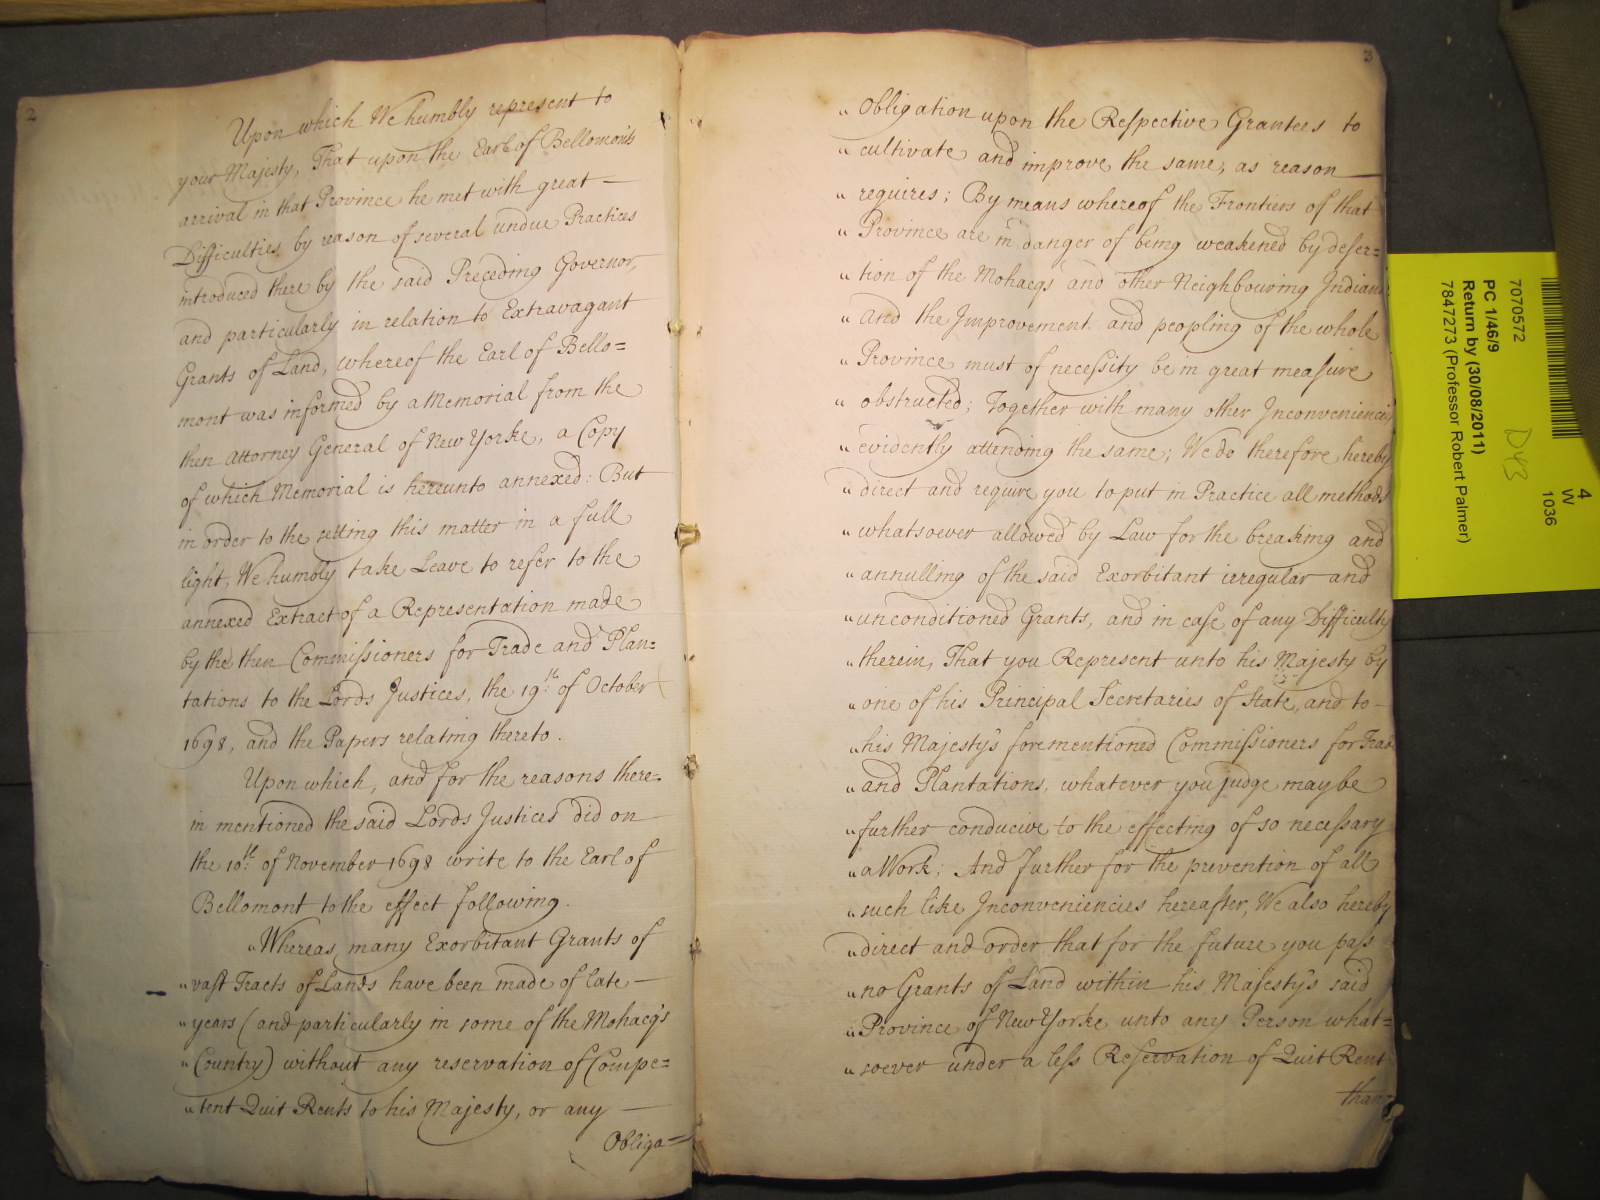 2
Upon which We humbly represent to
your Majesty, That upon the Earl of Bellomonts
arrival in that Province he met with great —
Difficulties by reason of several undue Practices
introduced there by the said Preceding Governor,
and particularly in relation to Extravagant
Grants of Land, whereof the Earl of Bello=
mont was informed by a Memorial from the
then Attorney General of New Yorke, a Copy
of which Memorial is hereunto annexed: But
in order to the setting this matter in a full
light, We humbly take Leave to refer to the
annexed Extract of a Representation made
by the then Commissioners for Trade and Plan=
tations to the Lords Justices, the 19th of October
1698, and the Papers relating thereto.
Upon which, and for the reasons there=
in mentioned the said Lords Justices did on
the 10th of November 1698 write to the Earl of
Bellomont to the effect following.
"Whereas many Exorbitant Grants of
"vast Tracts of Lands have been made of late —
"years (and particularly in some of the Mohacq's
"Country) without any reservation of Compe=
"tent Quit Rents to his Majesty, or any —
Obliga=
3
"Obligation upon the Respective Grantees to
"cultivate and improve the same, as reason —
"requires; By means whereof the Frontiers of that
"Province are in danger of being weakened by deser=
"tion of the Mohacqs and other Neighbouring Indians
"And the Improvement and peopling of the whole
"Province must of necessity be in great measure
"obstructed; Together with many other Inconveniencies
"evidently attending the same; We do therefore hereby
"direct and require you to put in Practice all methods
"whatsoever allowed by Law for the breaking and
"annulling of the said Exorbitant irregular and
"unconditioned Grants, and in case of any Difficulty
"therein, That you Represent unto his Majesty by
"one of his Principal Secretaries of State, and to —
"his Majesty's forementioned Commissioners for Trade
"and Plantations, whatever you judge may be
"further conducive to the effecting of so necessary
"a Work; And further for the prevention of all
"such like Inconveniencies hereafter, We also hereby
"direct and order that for the future you pass
"no Grants of Land within his Majesty's said
"Province of New Yorke unto any Person what=
"soever under a less Reservation of Quit Rent
than
7070572
PC 1/46/9
Return by (30/08/2011)
7847273 (Professor Robert Palmer)
D43
4
W
1036